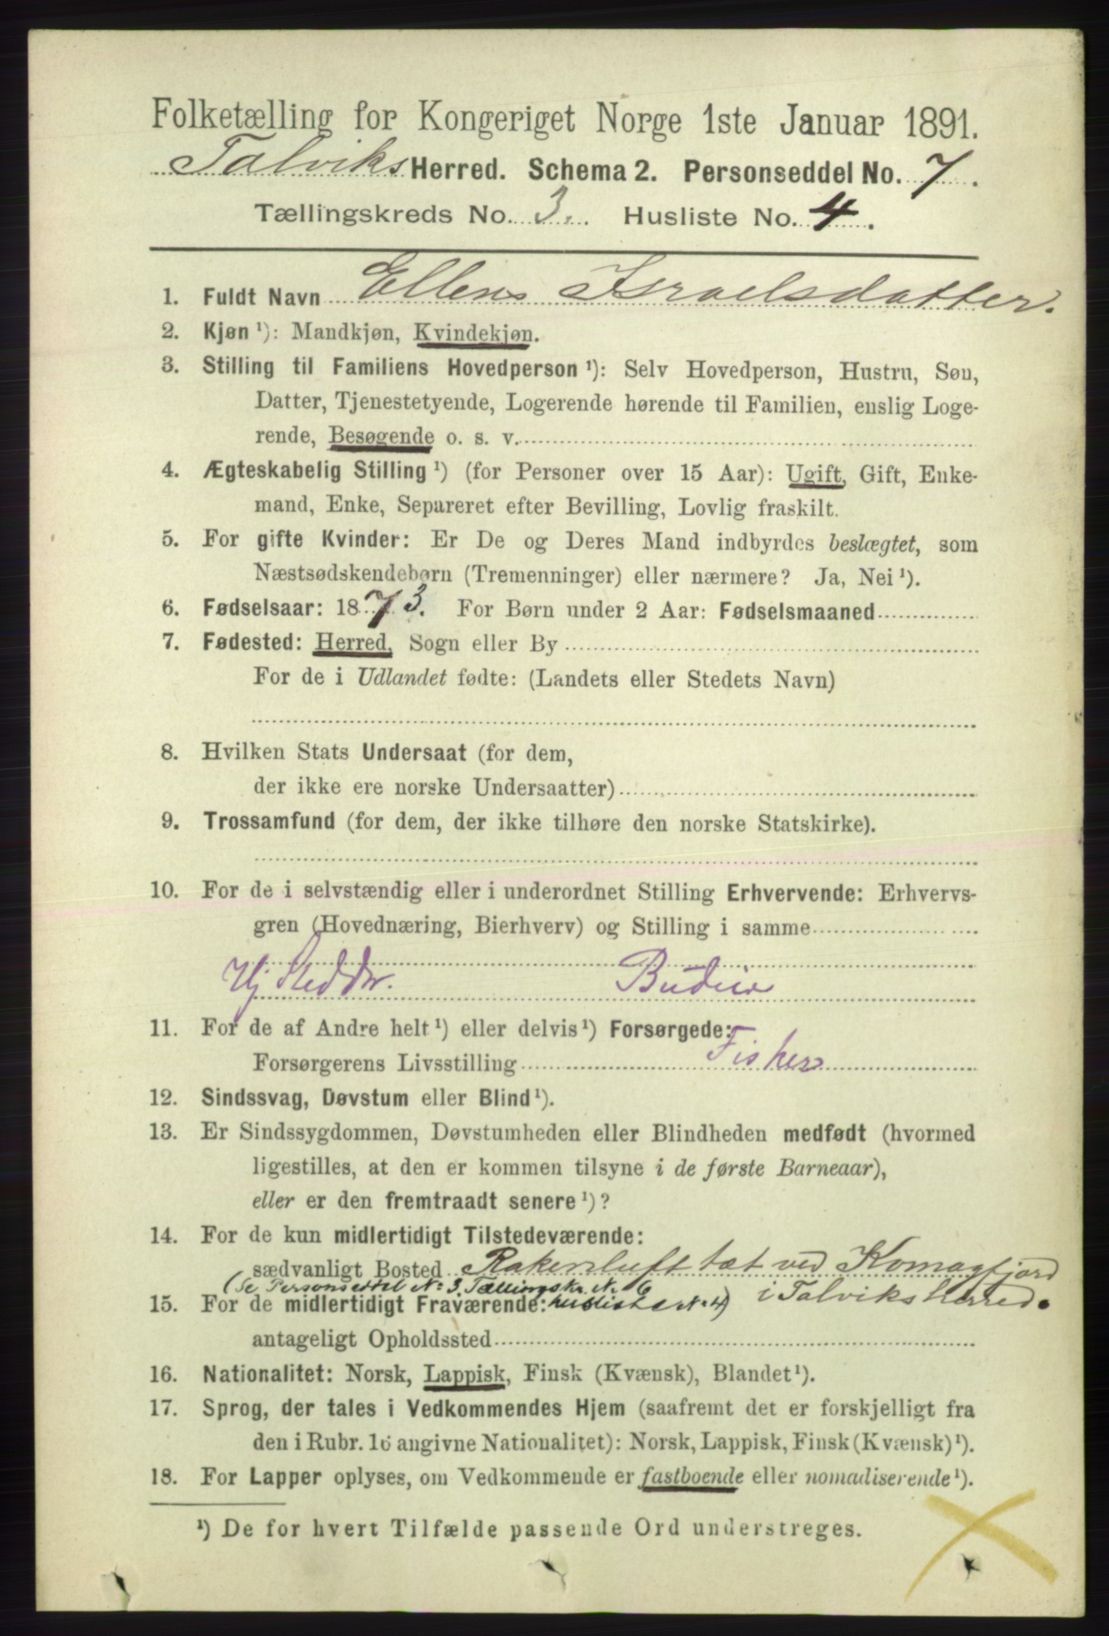 Folketælling for Kongeriget Norge 1ste Januar 1891.
Talviks Herred. Schema 2. Personseddel No. 7.
Tællingskreds No. 3. Husliste No. 4.
1. Fuldt Navn Ellens Israelsdatter.
2. Kjøn ¹): Mandkjøn, Kvindekjøn.
3. Stilling til Familiens Hovedperson ¹): Selv Hovedperson, Hustru, Søn,
Datter, Tjenestetyende, Logerende hørende til Familien, enslig Loge-
rende, Besøgende o. s. v.
4. Ægteskabelig Stilling ¹) (for Personer over 15 Aar): Ugift, Gift, Enke-
mand, Enke, Separeret efter Bevilling, Lovlig fraskilt.
5. For gifte Kvinder: Er De og Deres Mand indbyrdes beslægtet, som
Næstsødskendebørn (Tremenninger) eller nærmere? Ja, Nei ¹).
6. Fødselsaar: 1873. For Børn under 2 Aar: Fødselsmaaned
7. Fødested: Herred, Sogn eller By
For de i Udlandet fødte: (Landets eller Stedets Navn)
8. Hvilken Stats Undersaat (for dem,
der ikke ere norske Undersaatter)
9. Trossamfund (for dem, der ikke tilhøre den norske Statskirke).
10. For de i selvstændig eller i underordnet Stilling Erhvervende: Erhvervs-
gren (Hovednæring, Bierhverv) og Stilling i samme
Hj Budeie
11. For de af Andre helt ¹) eller delvis ¹) Forsørgede:
Forsørgerens Livsstilling Fisker
12. Sindssvag, Døvstum eller Blind ¹).
13. Er Sindssygdommen, Døvstumheden eller Blindheden medfødt (hvormed
ligestilles, at den er kommen tilsyne i de første Barneaar),
eller er den fremtraadt senere ¹)?
14. For de kun midlertidigt Tilstedeværende:
sædvanligt Bosted Rakenluft tæt ved Komagfjord
(Se Personseddel No 3, Tællingskr. No 6
15. For de midlertidigt Fraværende: husliste No 4) i Talviks Herred.
antageligt Opholdssted
16. Nationalitet: Norsk, Lappisk, Finsk (Kvænsk), Blandet ¹).
17. Sprog, der tales i Vedkommendes Hjem (saafremt det er forskjelligt fra
den i Rubr. 16 angivne Nationalitet): Norsk, Lappisk, Finsk (Kvænsk) ¹).
18. For Lapper oplyses, om Vedkommende er fastboende eller nomadiserende ¹).
¹) De for hvert Tilfælde passende Ord understreges.